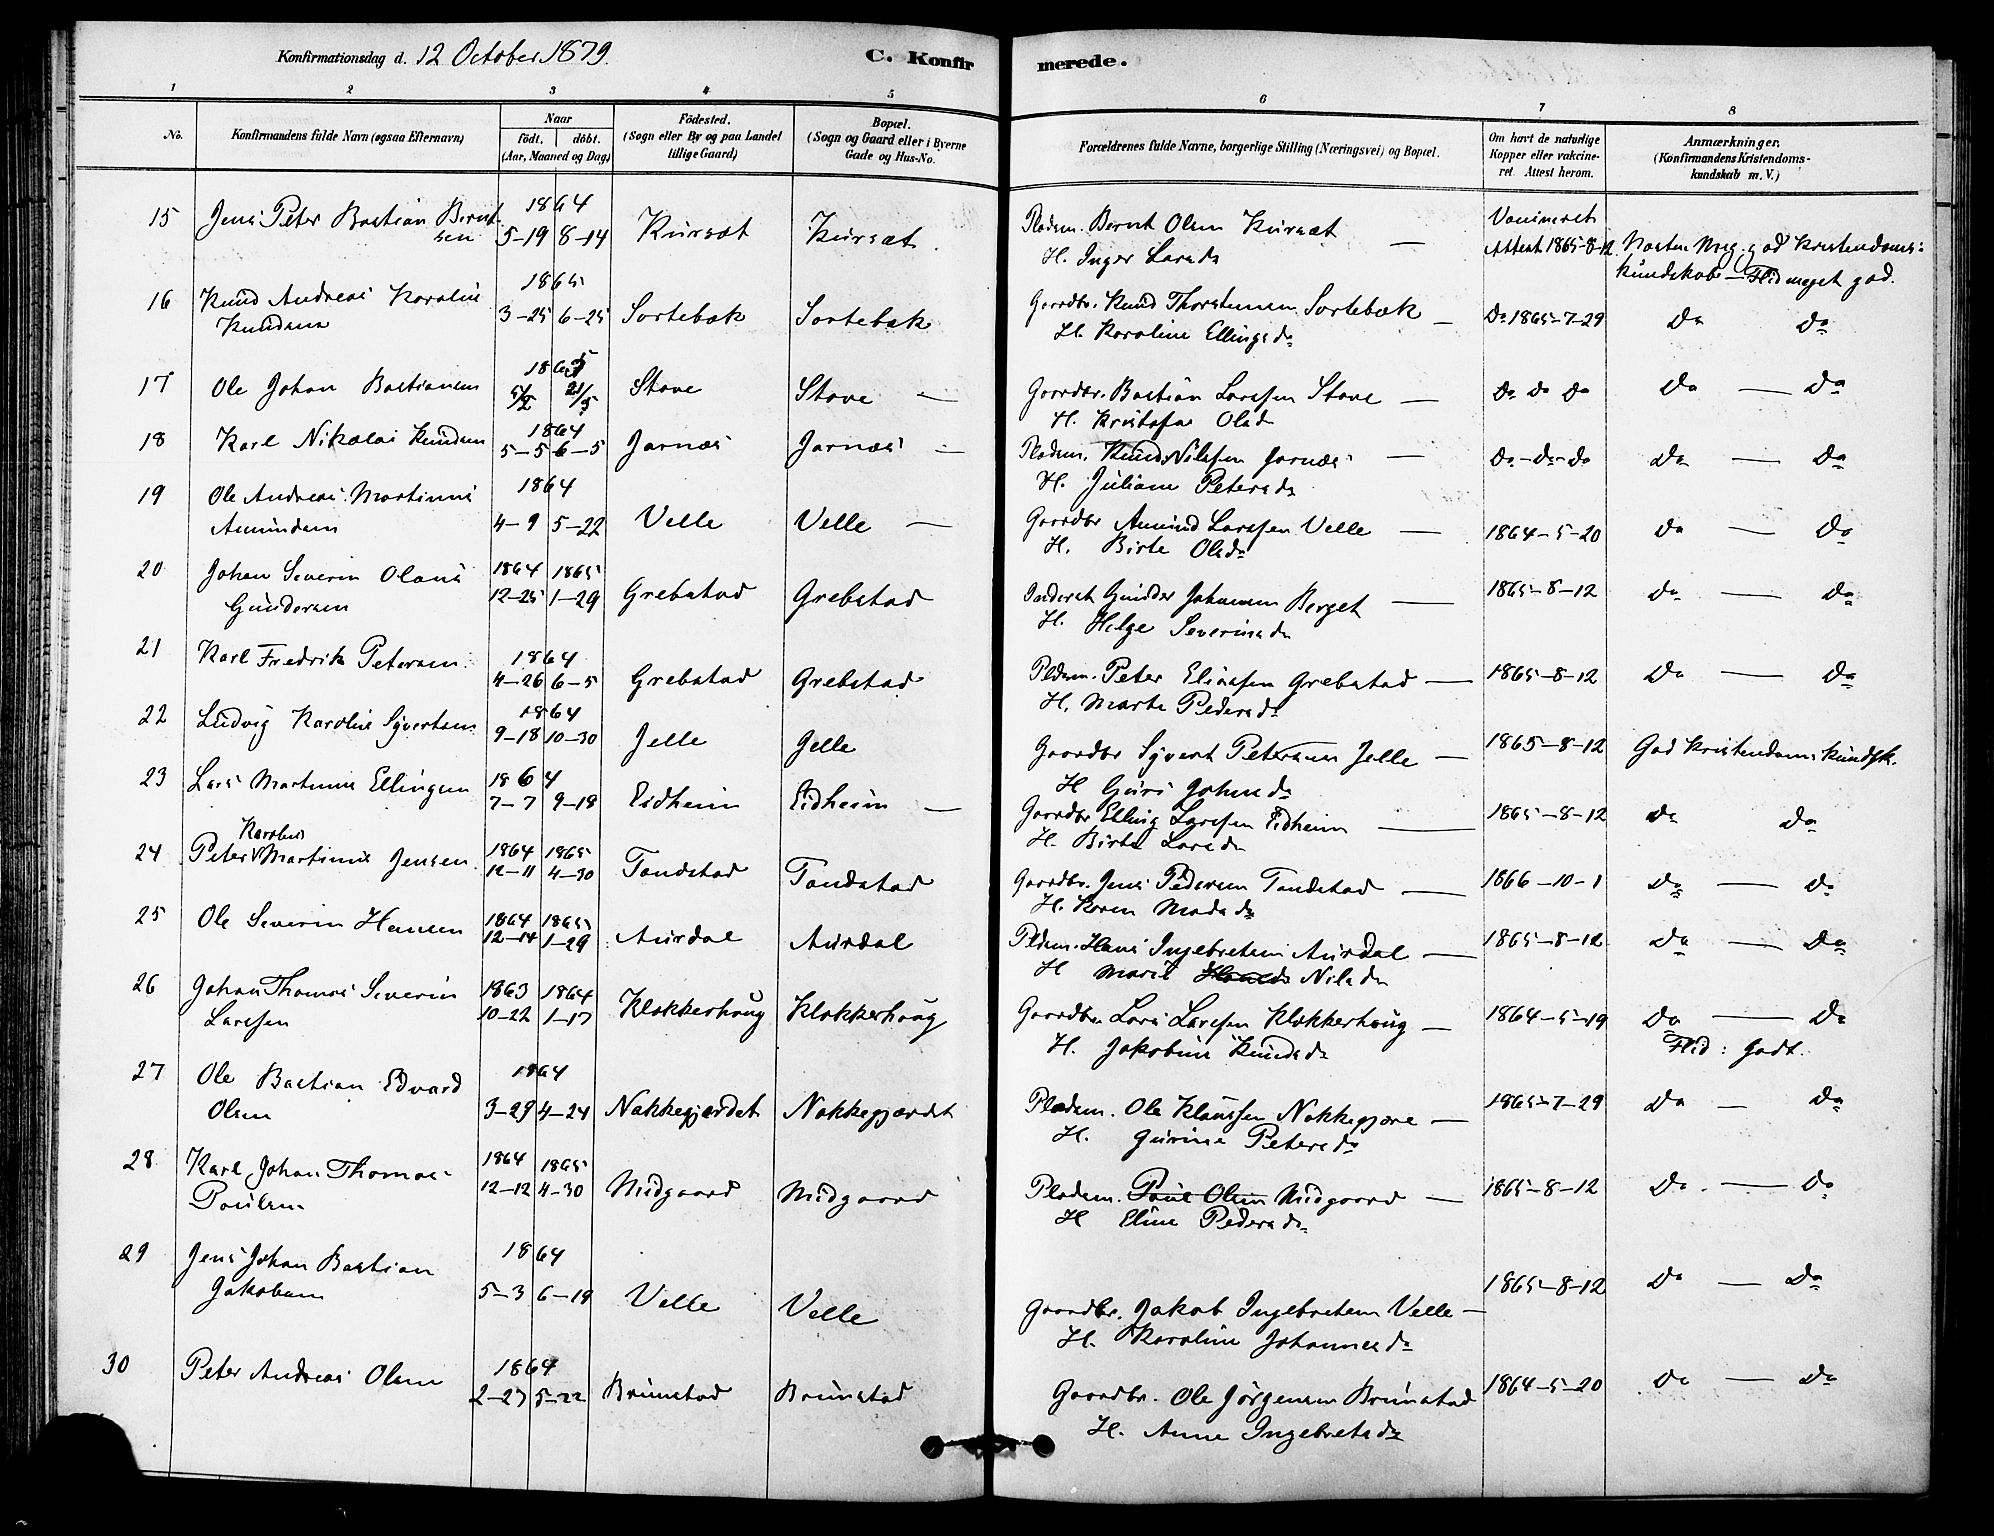 Konfirmationsdag d. 12 October 1879. C. Konfirmerede.
1 2 3 4 5 6 7 8
No. Konfirmandens fulde Navn (ogsaa Efternavn) Naar födt. döbt. (Aar, Maaned og Dag) Födested. (Sogn eller By og paa Landet tillige Gaard) Bopæl. (Sogn og Gaard eller i Byerne Gade og Hus-No. Forældrenes fulde Navne, borgerlige Stilling (Næringsvei) og Bopæl. Om havt de naturlige Kopper eller vakcineret Attest herom. Anmærkninger. (Konfirmandens Kristendomskundskab m. V.)
15 Jens Peter Bastian Berntsen 1864 5-19 8-14 Kursæt Kursæt Pladsm. Bernt Olsen Kursæt —
H. Inger Larsdr Attest 1865-8-12 Næsten meg. god Kristendomskundskab — Flid meget god.
16 Knud Andreas Karolius Knudsen 1865 3-25 6-25 Sortebæk Sortebæk Gaardbr. Knud Thorstensen Sortebæk —
H. Karoline Ellingsdr Do 1865-7-29 Do Do
17 Ole Johan Bastiansen 1865 5/2 21/5 Stave Stave — Gaardbr. Bastian Larssen Stave —
H. Kristofa Olsd Do Do Do Do — Do
18 Karl Nikolai Knudsen 1864 5-5 6-5 Jarnæs Jarnæs — Pladsm. Knud Nilssen Jarnæs —
H. Juliane Petersdr Do - Do - Do Do — Do
19 Ole Andreas Martinus Amundsen 1864 4-9 5-22 Velle Velle — Gaardbr Amund Larssen Velle —
H. Birte Olsdr 1864-5-20 Do — Do
20 Johan Severin Olaus Gundersen 1864 12-25 1865 1-29 Grebstad Grebstad Gunder Johannesen Berget —
H. Helge Severinsdr 1865-8-12 Do — Do
21 Karl Fredrik Petersen 1864 4-26 6-5 Grebstad Grebstad Pldsm. Peter Eliassen Grebstad —
H. Marte Pedersdr 1865-8-12 Do — Do
22 Ludvig Karolius Syvertsen 1864 9-18 10-30 Jelle Jelle Gaardbr Syvert Petersen Jelle —
H Guri Johnsdr 1865-8-12 God Kristendomskundsk.
23 Lars Martinus Ellingsen 1864 7-7 9-18 Eidheim Eidheim — Gaardbr Elling Larssen Eidheim —
H. Birte Larsdr 1865-8-12 Do Do
24 Peter Karolus Martinus Jensen 1864 12-11 1865 4-30 Tandstad Tandstad Gaardbr. Jens Pedersen Tandstad —
H. Karen Madsdr 1866-10-1 Do — Do
25 Ole Severin Hansen 1864 12-14 1865 1-29 Aurdal Aurdal Pldsm. Hans Ingebretsen Aurdal —
H Marit Nilsdr 1865-8-12 Do — Do
26 Johan Thomas Severin Larssen 1863 10-22 1864 1-17 Klokkerhaug Klokkerhaug Gaardbr Lars Larssen Klokkerhaug —
H. Jakobine Knudsdr 1864-5-19 Do — Do
Flid: Godt.
27 Ole Bastian Edvard Olsen 1864 3-29 4-24 Nakkegjærdet Nakkegjærdet Pladsm. Ole Klaussen Nakkegjære —
H. Gurine Petersdr 1865-7-29 Do — Do
28 Karl Johan Thomas Poulsen 1864 12-12 1865 4-30 Midgaard Midgaard Pladsm. Poul Olsen Midgaard —
H Eline Pedersdr 1865-8-12 Do — Do
29 Jens Johan Bastian Jakobsen 1864 5-3 6-19 Velle Velle Gaardbr. Jakob Ingebretsen Velle —
H. Karoline Johannesdr 1865-8-12 Do — Do
30 Peter Andreas Olsen 1864 2-27 5-22 Brunstad Brunstad Gaardbr. Ole Jörgensen Brunstad
H. Anne Ingebretsdr 1864-5-20 Do — Do